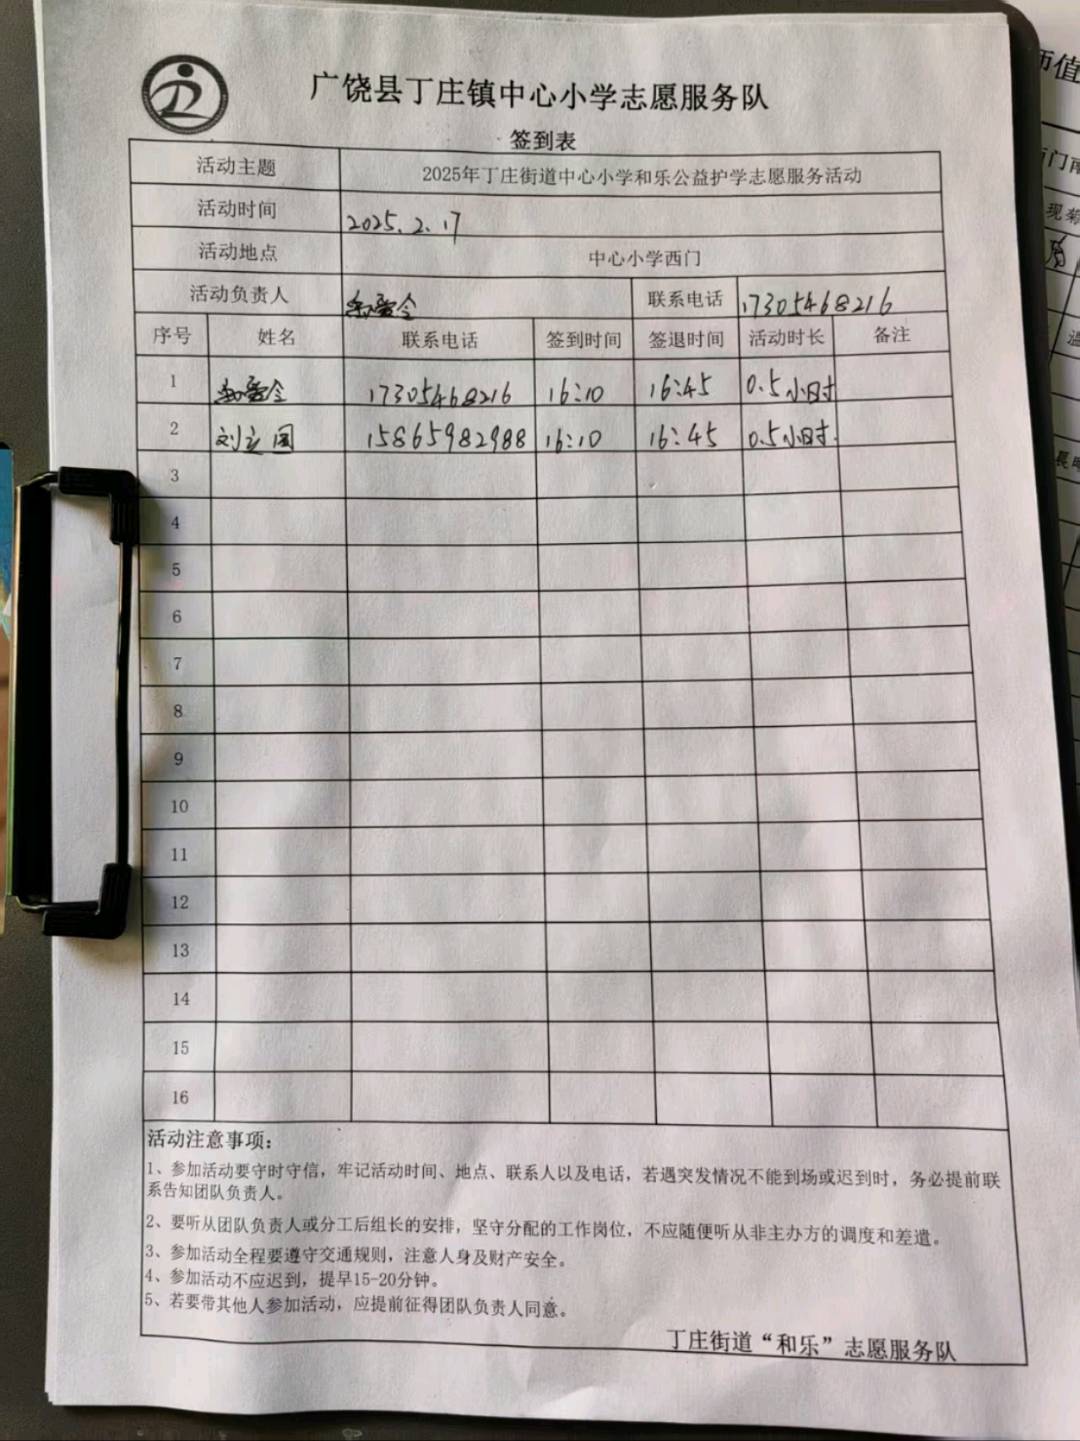 广饶县丁庄镇中心小学志愿服务队
签到表
活动主题 2025年丁庄街道中心小学和乐公益护学志愿服务活动
活动时间 2025.2.17
活动地点 中心小学西门
活动负责人 联系电话 17305468216
序号 姓名 联系电话 签到时间 签退时间 活动时长 备注
1 17305468216 16:10 16:45 0.5小时
2 刘立国 15865982988 16:10 16:45 0.5小时.
3
4
5
6
7
8
9
10
11
12
13
14
15
16
活动注意事项：
1、参加活动要守时守信，牢记活动时间、地点、联系人以及电话，若遇突发情况不能到场或迟到时，务必提前联
系告知团队负责人。
2、要听从团队负责人或分工后组长的安排，坚守分配的工作岗位，不应随便听从非主办方的调度和差遣。
3、参加活动全程要遵守交通规则，注意人身及财产安全。
4、参加活动不应迟到，提早15-20分钟。
5、若要带其他人参加活动，应提前征得团队负责人同意。
丁庄街道“和乐”志愿服务队